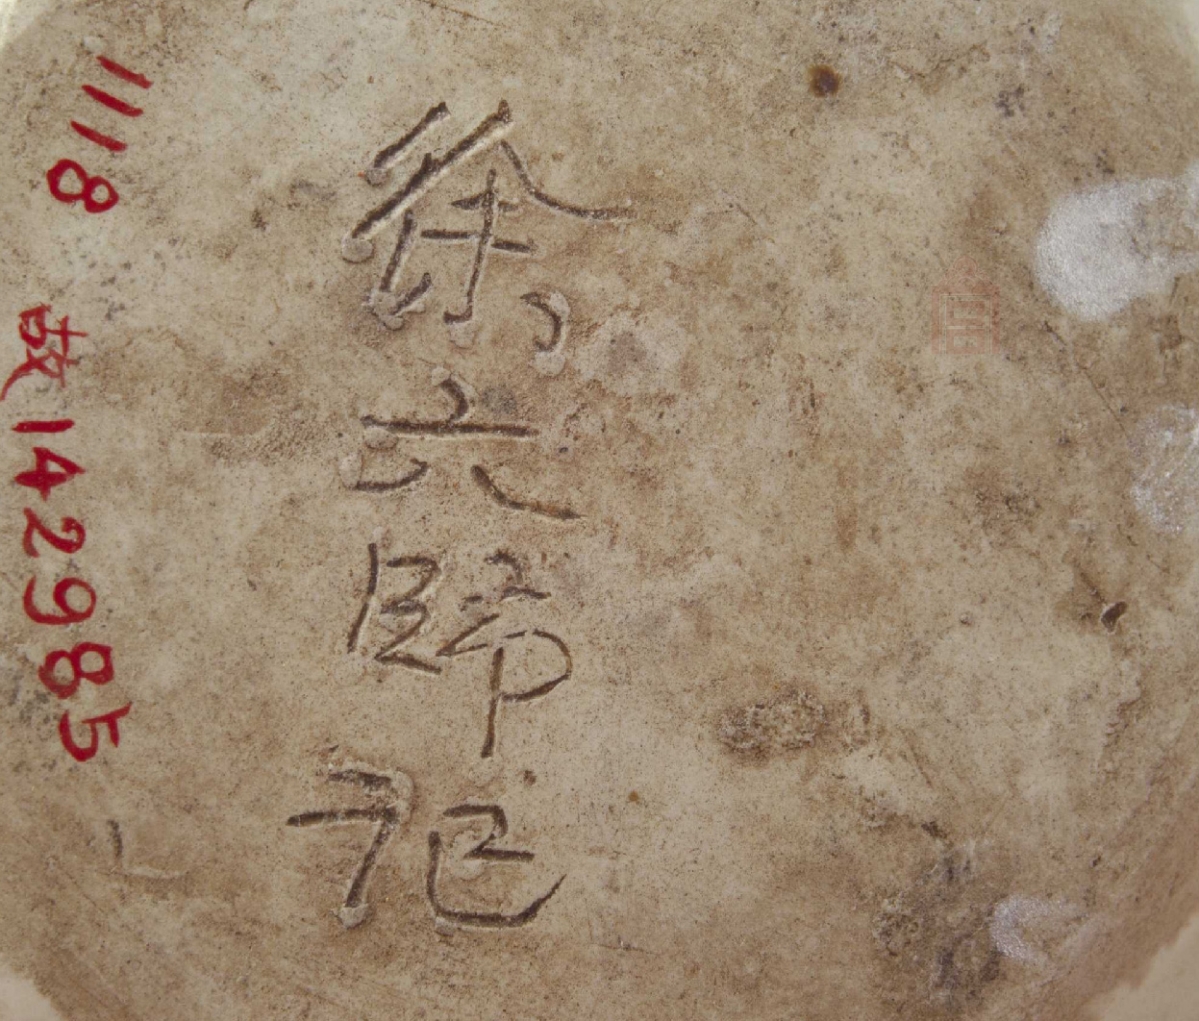 徐六師記
1118 故142985